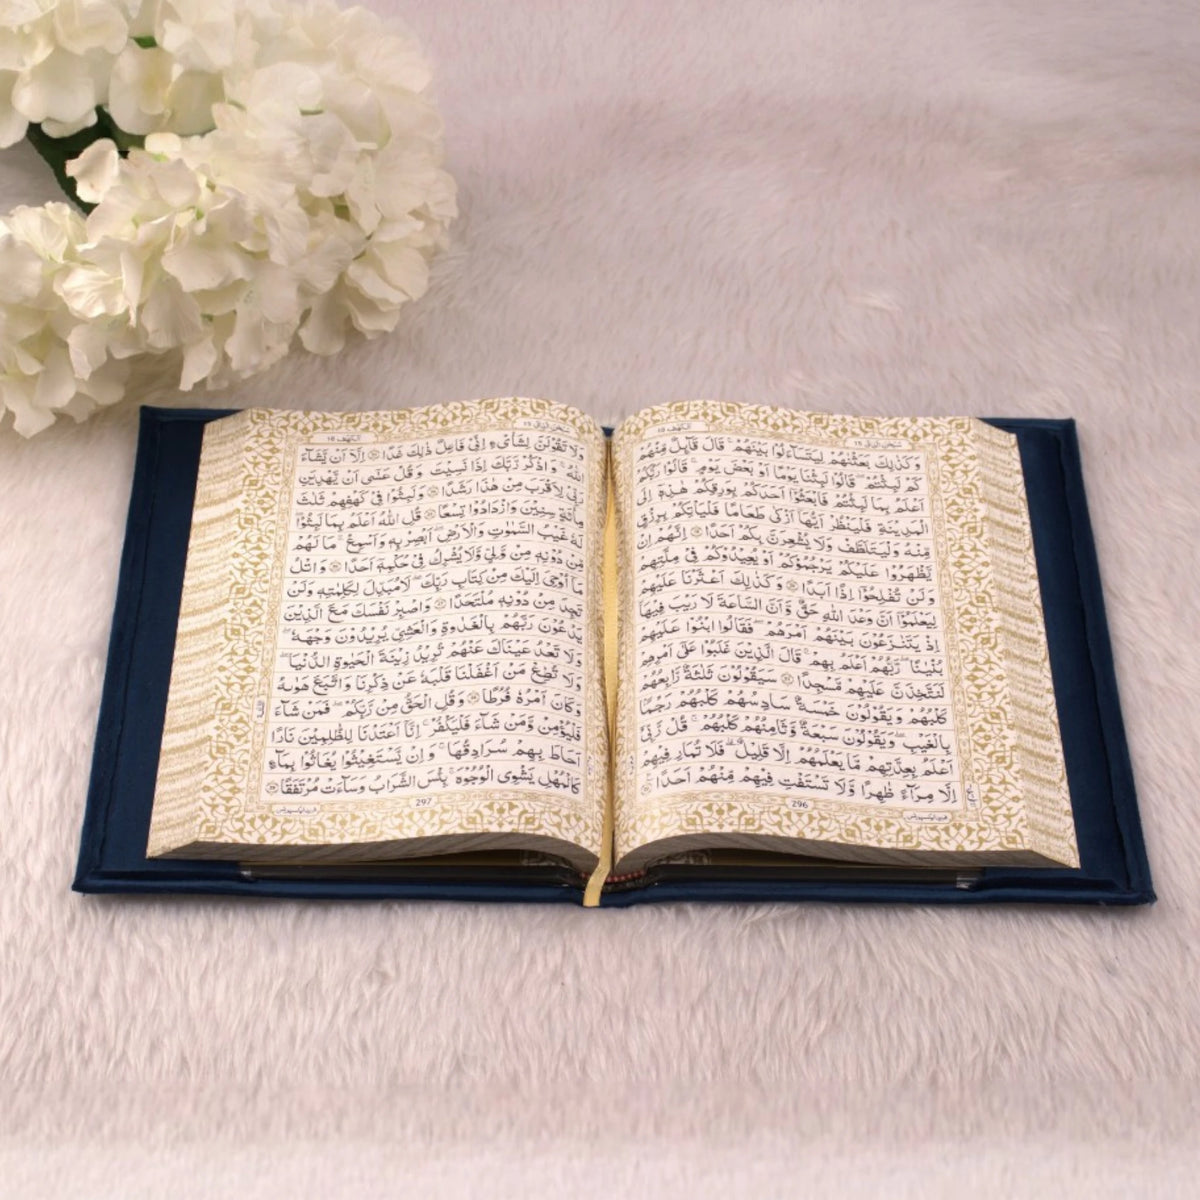 سبحن الذي 15
الكهف 18
وَكَذٰلِكَ بَعَثْنٰهُمْ لِيَتَسَآءَلُوْا بَيْنَهُمْ ؕ قَالَ قَآئِلٌ مِّنْهُمْ
كَمْ لَبِثْتُمْ ؕ قَالُوْا لَبِثْنَا يَوْمًا اَوْ بَعْضَ يَوْمٍ ؕ قَالُوْا رَبُّكُمْ
اَعْلَمُ بِمَا لَبِثْتُمْ فَابْعَثُوْۤا اَحَدَكُمْ بِوَرِقِكُمْ هٰذِهٖۤ اِلَى
الْمَدِيْنَةِ فَلْيَنْظُرْ اَيُّهَاۤ اَزْكٰى طَعَامًا فَلْيَاْتِكُمْ بِرِزْقٍ
مِّنْهُ وَلْيَتَلَطَّفْ وَلَا يُشْعِرَنَّ بِكُمْ اَحَدًا ۝ اِنَّهُمْ اِنْ
يَّظْهَرُوْا عَلَيْكُمْ يَرْجُمُوْكُمْ اَوْ يُعِيْدُوْكُمْ فِيْ مِلَّتِهِمْ
وَلَنْ تُفْلِحُوْۤا اِذًا اَبَدًا ۝ وَكَذٰلِكَ اَعْثَرْنَا عَلَيْهِمْ
لِيَعْلَمُوْۤا اَنَّ وَعْدَ اللّٰهِ حَقٌّ وَّاَنَّ السَّاعَةَ لَا رَيْبَ فِيْهَا
اِذْ يَتَنَازَعُوْنَ بَيْنَهُمْ اَمْرَهُمْ فَقَالُوا ابْنُوْا عَلَيْهِمْ
بُنْيَانًا ؕ رَبُّهُمْ اَعْلَمُ بِهِمْ ؕ قَالَ الَّذِيْنَ غَلَبُوْا عَلٰۤى اَمْرِهِمْ
لَنَتَّخِذَنَّ عَلَيْهِمْ مَّسْجِدًا ۝ سَيَقُوْلُوْنَ ثَلٰثَةٌ رَّابِعُهُمْ
كَلْبُهُمْ ۚ وَيَقُوْلُوْنَ خَمْسَةٌ سَادِسُهُمْ كَلْبُهُمْ رَجْمًۢا
بِالْغَيْبِ ۚ وَيَقُوْلُوْنَ سَبْعَةٌ وَّثَامِنُهُمْ كَلْبُهُمْ ؕ قُلْ رَّبِّيْۤ
اَعْلَمُ بِعِدَّتِهِمْ مَّا يَعْلَمُهُمْ اِلَّا قَلِيْلٌ ۬ فَلَا تُمَارِ فِيْهِمْ
اِلَّا مِرَآءً ظَاهِرًا ۪ وَّلَا تَسْتَفْتِ فِيْهِمْ مِّنْهُمْ اَحَدًا ۝
296
سبحن الذي 15
الكهف 18
وَلَا تَقُوْلَنَّ لِشَايْءٍ اِنِّيْ فَاعِلٌ ذٰلِكَ غَدًا ۝ اِلَّاۤ اَنْ يَّشَآءَ
اللّٰهُ ۫ وَاذْكُرْ رَّبَّكَ اِذَا نَسِيْتَ وَقُلْ عَسٰۤى اَنْ يَّهْدِيَنِ
رَبِّيْ لِاَقْرَبَ مِنْ هٰذَا رَشَدًا ۝ وَلَبِثُوْا فِيْ كَهْفِهِمْ ثَلٰثَ
مِائَةٍ سِنِيْنَ وَازْدَادُوْا تِسْعًا ۝ قُلِ اللّٰهُ اَعْلَمُ بِمَا لَبِثُوْا ۚ
لَهٗ غَيْبُ السَّمٰوٰتِ وَالْاَرْضِ ؕ اَبْصِرْ بِهٖ وَاَسْمِعْ ؕ مَا لَهُمْ
مِّنْ دُوْنِهٖ مِنْ وَّلِيٍّ ۫ وَّلَا يُشْرِكُ فِيْ حُكْمِهٖۤ اَحَدًا ۝ وَاتْلُ
مَاۤ اُوْحِيَ اِلَيْكَ مِنْ كِتَابِ رَبِّكَ ؕ لَا مُبَدِّلَ لِكَلِمٰتِهٖ ۫ وَلَنْ
تَجِدَ مِنْ دُوْنِهٖ مُلْتَحَدًا ۝ وَاصْبِرْ نَفْسَكَ مَعَ الَّذِيْنَ
يَدْعُوْنَ رَبَّهُمْ بِالْغَدٰوةِ وَالْعَشِيِّ يُرِيْدُوْنَ وَجْهَهٗ
وَلَا تَعْدُ عَيْنٰكَ عَنْهُمْ ۚ تُرِيْدُ زِيْنَةَ الْحَيٰوةِ الدُّنْيَا ۚ
وَلَا تُطِعْ مَنْ اَغْفَلْنَا قَلْبَهٗ عَنْ ذِكْرِنَا وَاتَّبَعَ هَوٰىهُ
وَكَانَ اَمْرُهٗ فُرُطًا ۝ وَقُلِ الْحَقُّ مِنْ رَّبِّكُمْ ۫ فَمَنْ شَآءَ
فَلْيُؤْمِنْ وَّمَنْ شَآءَ فَلْيَكْفُرْ ۙ اِنَّاۤ اَعْتَدْنَا لِلظّٰلِمِيْنَ نَارًا ۙ
اَحَاطَ بِهِمْ سُرَادِقُهَا ؕ وَاِنْ يَّسْتَغِيْثُوْا يُغَاثُوْا بِمَآءٍ
كَالْمُهْلِ يَشْوِي الْوُجُوْهَ ؕ بِئْسَ الشَّرَابُ ؕ وَسَآءَتْ مُرْتَفَقًا ۝
297